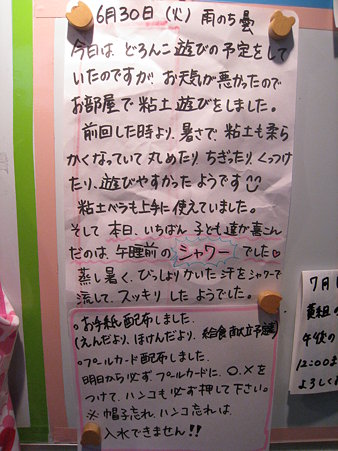 6月30日（火）雨のち曇
今日は どろんこ遊びの予定をして
いたのですが お天気が悪かったので
お部屋で 粘土遊びをしました。
前回した時より、暑さで 粘土も柔ら
かくなっていて 丸めたり ちぎったり、くっつけ
たり、遊びやすかったようです
粘土ベラも上手に使えていました。
そして 本日、いちばん 子ども達が喜こん
だのは、午睡前の シャワー でした♡
蒸し暑く、びっしょりかいた汗をシャワーで
流して、スッキリしたようでした。
○お手紙配布しました。
（えんだより、ほけんだより、給食献立予定）
○プールカード配布しました。
明日から必ずプールカードに、○、×を
つけて、ハンコも必ず押して下さい。
※帽子忘れ、ハンコ忘れは
入水できません!!
7月
黄組の
午後の
12:00ま
よろしく